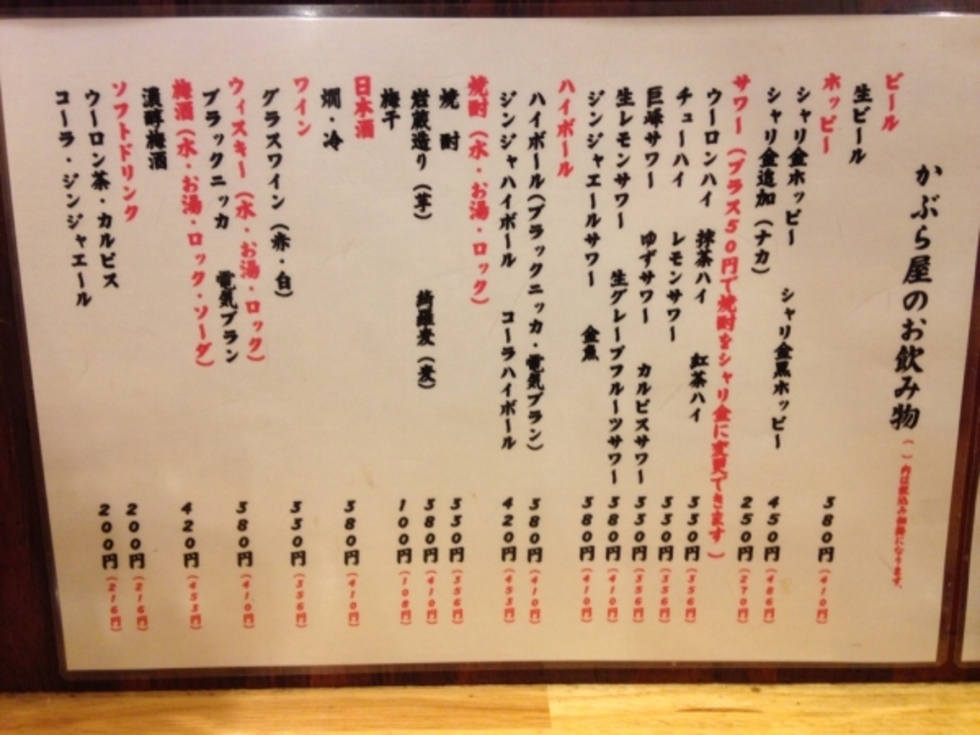 かぶら屋のお飲み物 ( )内は税込み価格になります。
ビール
生ビール 380円(410円)
ホッピー
シャリ金ホッピー シャリ金黒ホッピー 450円(486円)
シャリ金追加(ナカ) 250円(270円)
サワー(プラス50円で焼酎をシャリ金に変更できます)
ウーロンハイ 抹茶ハイ 紅茶ハイ 330円(356円)
チューハイ レモンサワー 330円(356円)
巨峰サワー ゆずサワー カルピスサワー 330円(356円)
生レモンサワー 生グレープフルーツサワー 380円(410円)
ジンジャエールサワー 金魚 380円(410円)
ハイボール
ハイボール(ブラックニッカ・電気ブラン) 380円(410円)
ジンジャハイボール コーラハイボール 420円(453円)
焼酎(水・お湯・ロック)
焼酎 330円(356円)
岩蔵造り(芋) 綺羅麦(麦) 380円(410円)
梅干 100円(108円)
日本酒
燗・冷 380円(410円)
ワイン
グラスワイン(赤・白) 330円(356円)
ウィスキー(水・お湯・ロック)
ブラックニッカ 電気ブラン 380円(410円)
梅酒(水・お湯・ロック・ソーダ)
濃醇梅酒 420円(453円)
ソフトドリンク
ウーロン茶・カルピス 200円(216円)
コーラ・ジンジャエール 200円(216円)